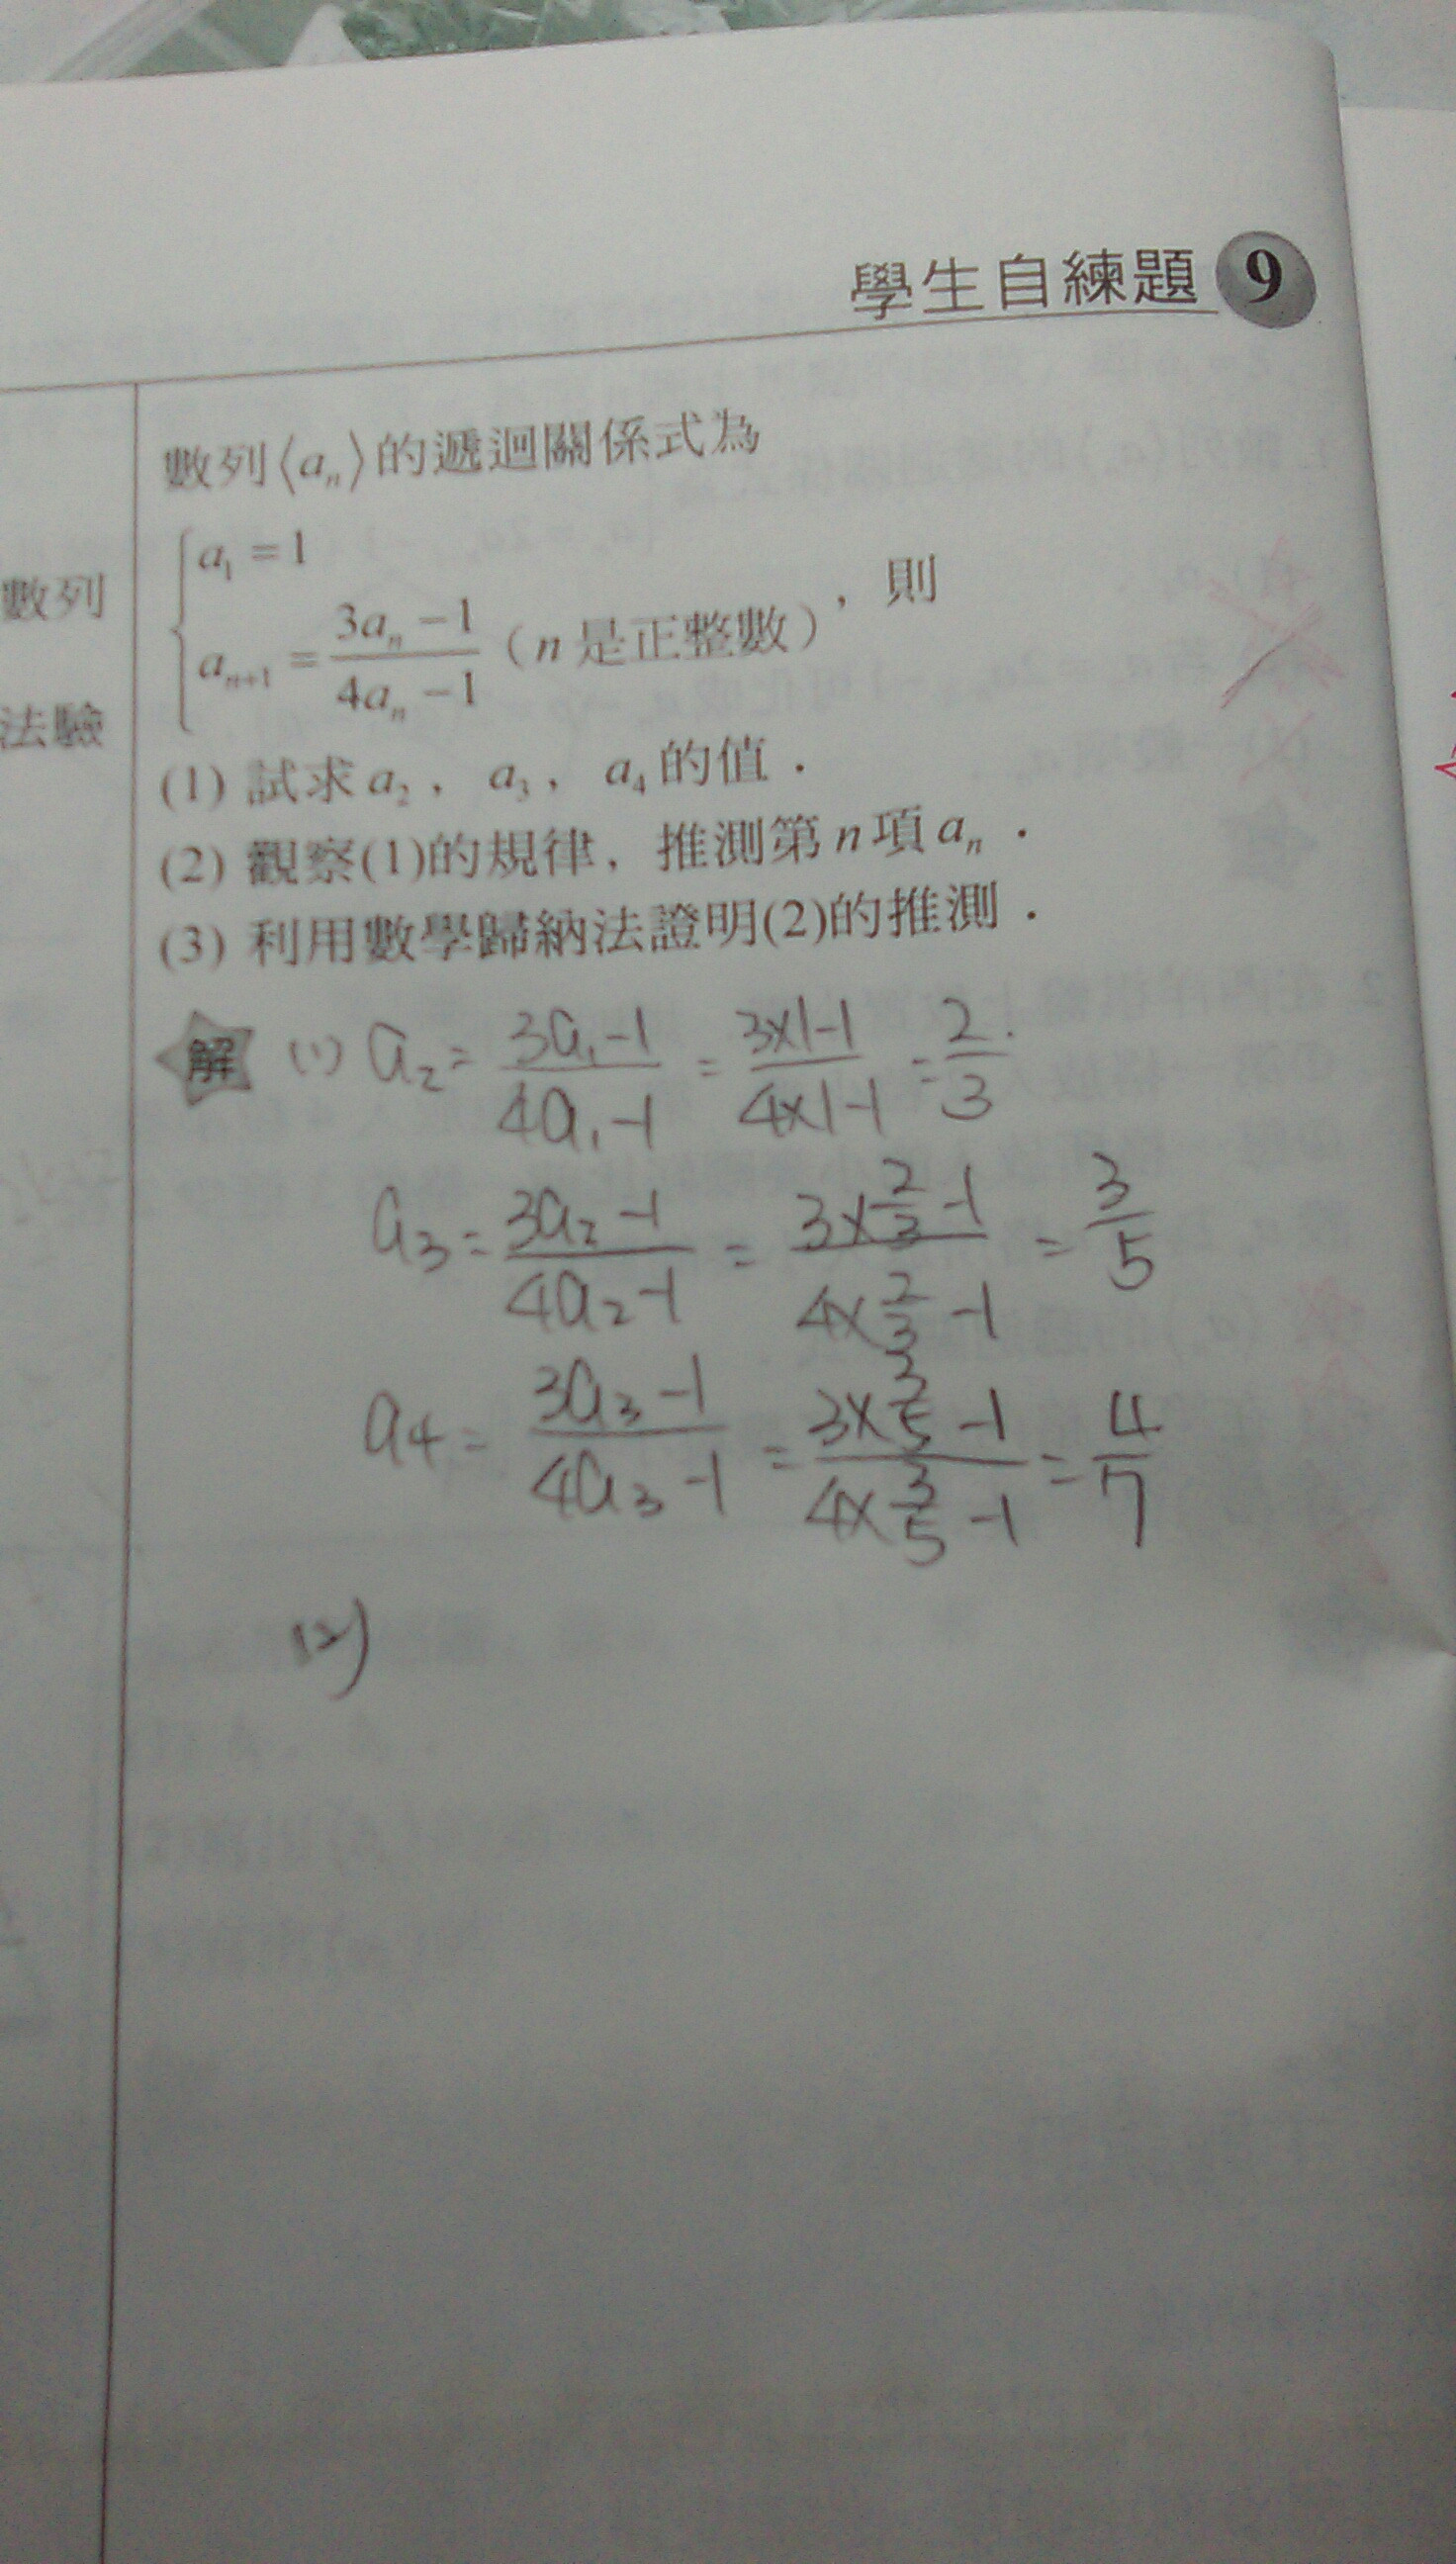 學生自練題 9
數列⟨aₙ⟩的遞迴關係式為
a₁ = 1
aₙ₊₁ = (3aₙ − 1)/(4aₙ − 1)（n 是正整數），則
數列
法驗
(1) 試求 a₂，a₃，a₄ 的值．
(2) 觀察(1)的規律，推測第 n 項 aₙ．
(3) 利用數學歸納法證明(2)的推測．
解 (1) a₂ = (3a₁−1)/(4a₁−1) = (3×1−1)/(4×1−1) = 2/3
a₃ = (3a₂−1)/(4a₂−1) = (3×2/3−1)/(4×2/3−1) = 3/5
a₄ = (3a₃−1)/(4a₃−1) = (3×3/5−1)/(4×3/5−1) = 4/7
(2)